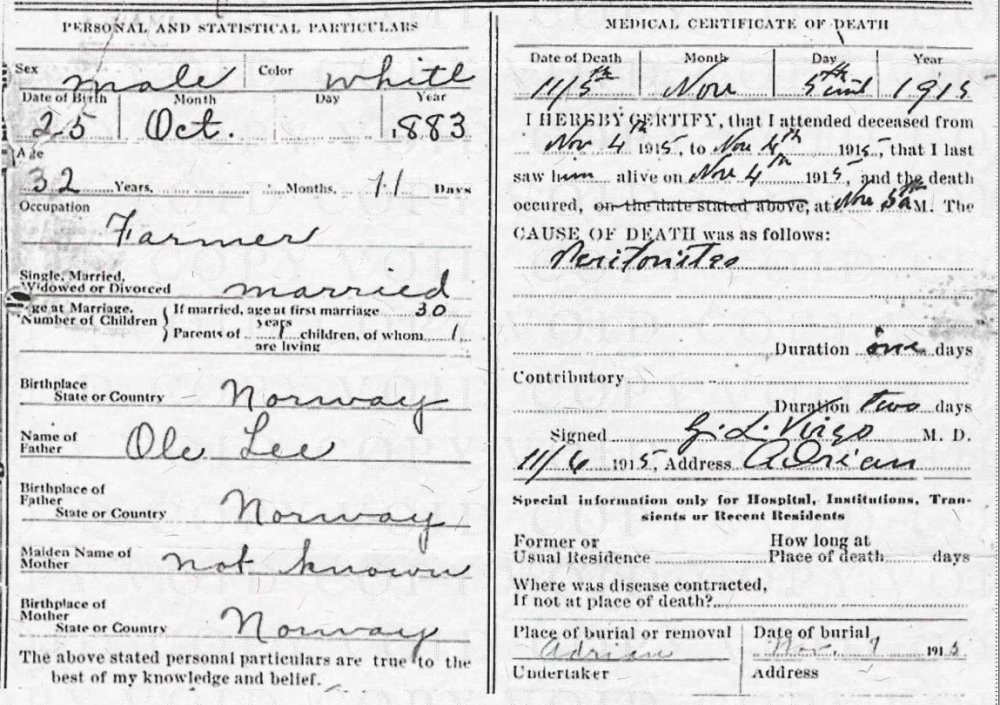 PERSONAL AND STATISTICAL PARTICULARS
Sex male Color white
Date of Birth Month Day Year
25 Oct. 1883
Age
32 Years, Months, 11 Days
Occupation
Farmer
Single, Married,
Widowed or Divorced married
Age at Marriage. If married, age at first marriage 30
Number of Children years
Parents of 1 children, of whom 1
are living
Birthplace
State or Country Norway
Name of
Father Ole Lee
Birthplace of
Father
State or Country Norway
Maiden Name of
Mother not known
Birthplace of
Mother
State or Country Norway
The above stated personal particulars are true to the
best of my knowledge and belief.
MEDICAL CERTIFICATE OF DEATH
Date of Death Month Day Year
11/5th Nov 5th 1915
I HEREBY CERTIFY, that I attended deceased from
Nov 4th 1915, to Nov 4th 1915, that I last
saw him alive on Nov 4th 1915, and the death
occured, on the date stated above, at Nov 5th M. The
CAUSE OF DEATH was as follows:
Peritonites
Duration one days
Contributory
Duration two days
Signed G. L. Virgo M. D.
11/6 1915, Address Adrian
Special information only for Hospital, Institutions, Tran-
sients or Recent Residents
Former or How long at
Usual Residence Place of death days
Where was disease contracted,
If not at place of death?
Place of burial or removal Date of burial
Adrian Nov. 7 1915
Undertaker Address